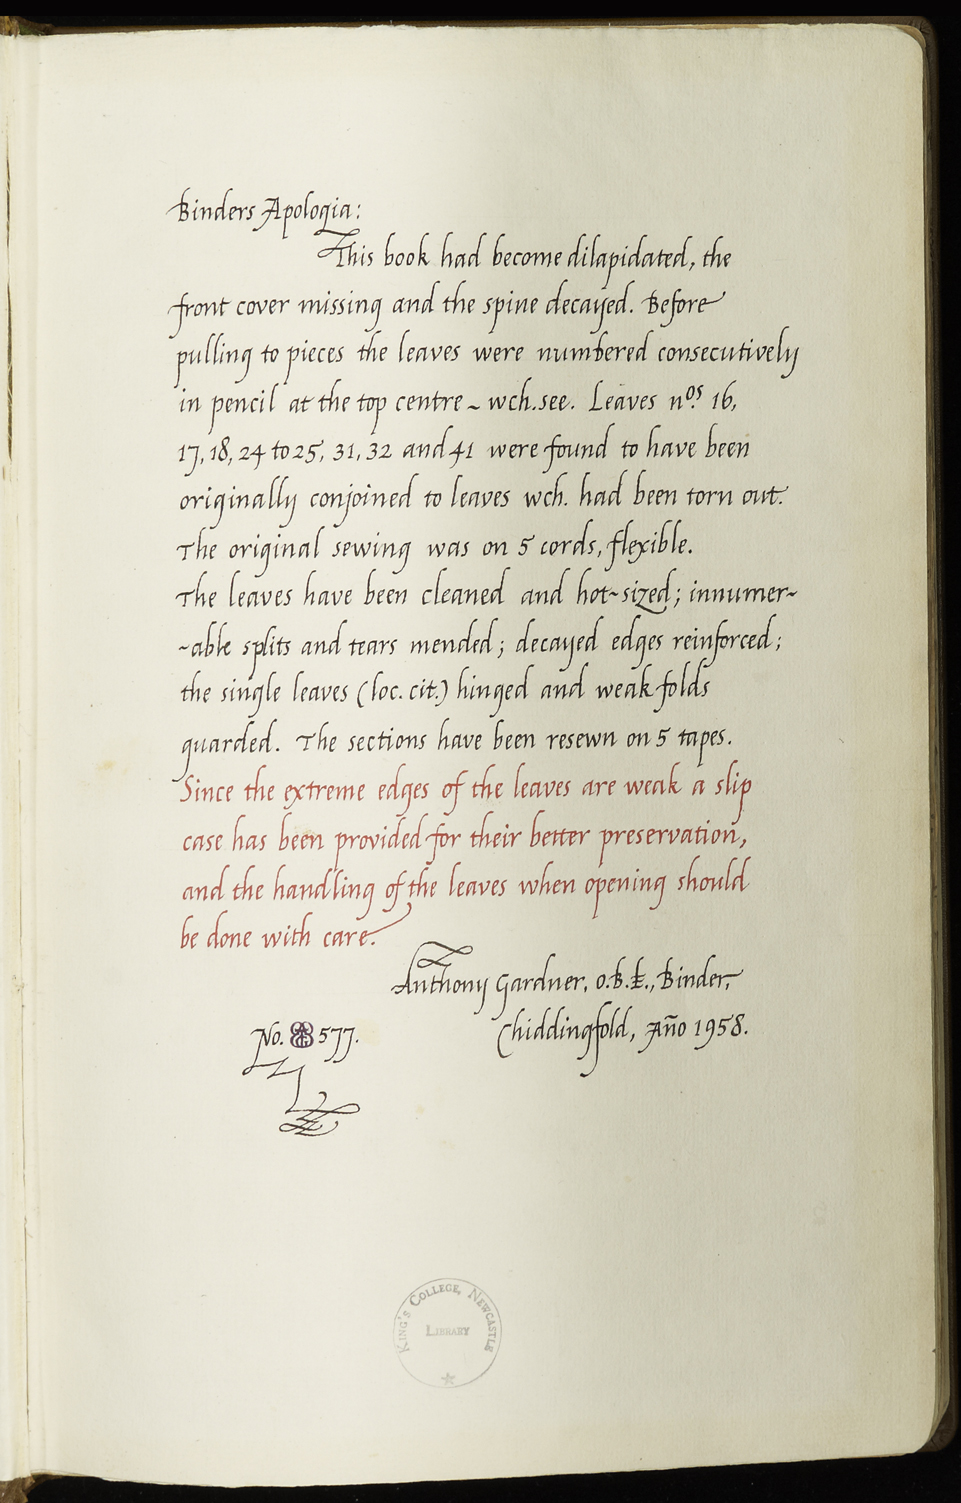 Binders Apologia:
This book had become dilapidated, the
front cover missing and the spine decayed. Before
pulling to pieces the leaves were numbered consecutively
in pencil at the top centre ~ wch. see. Leaves nos. 16,
17, 18, 24 to 25, 31, 32 and 41 were found to have been
originally conjoined to leaves wch. had been torn out.
The original sewing was on 5 cords, flexible.
The leaves have been cleaned and hot~sized; innumer~
~able splits and tears mended; decayed edges reinforced;
the single leaves (loc. cit.) hinged and weak folds
guarded. The sections have been resewn on 5 tapes.
Since the extreme edges of the leaves are weak a slip
case has been provided for their better preservation,
and the handling of the leaves when opening should
be done with care.
Anthony Gardner, O.B.E., Binder,
Chiddingfold, Año 1958.
No. 577.
King's College, Newcastle
Library